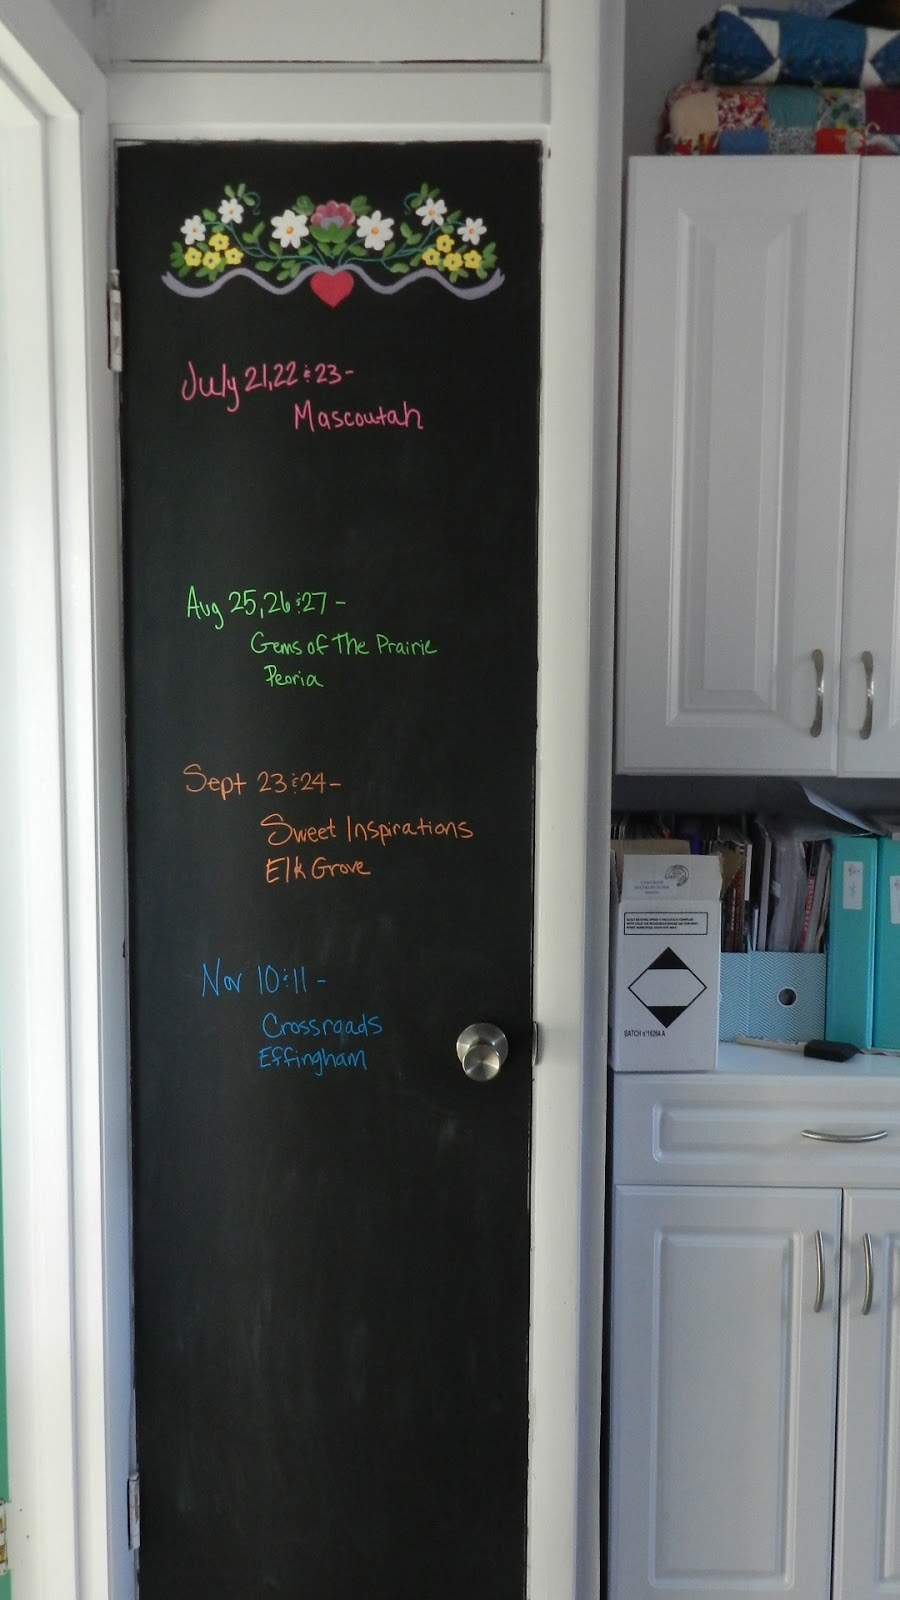 July 21,22 & 23-
Mascoutah
Aug 25,26 & 27-
Gems of The Prairie
Peoria
Sept 23 & 24-
Sweet Inspirations
Elk Grove
Nov 10 & 11-
Crossroads
Effingham
BATCH n°16264 A